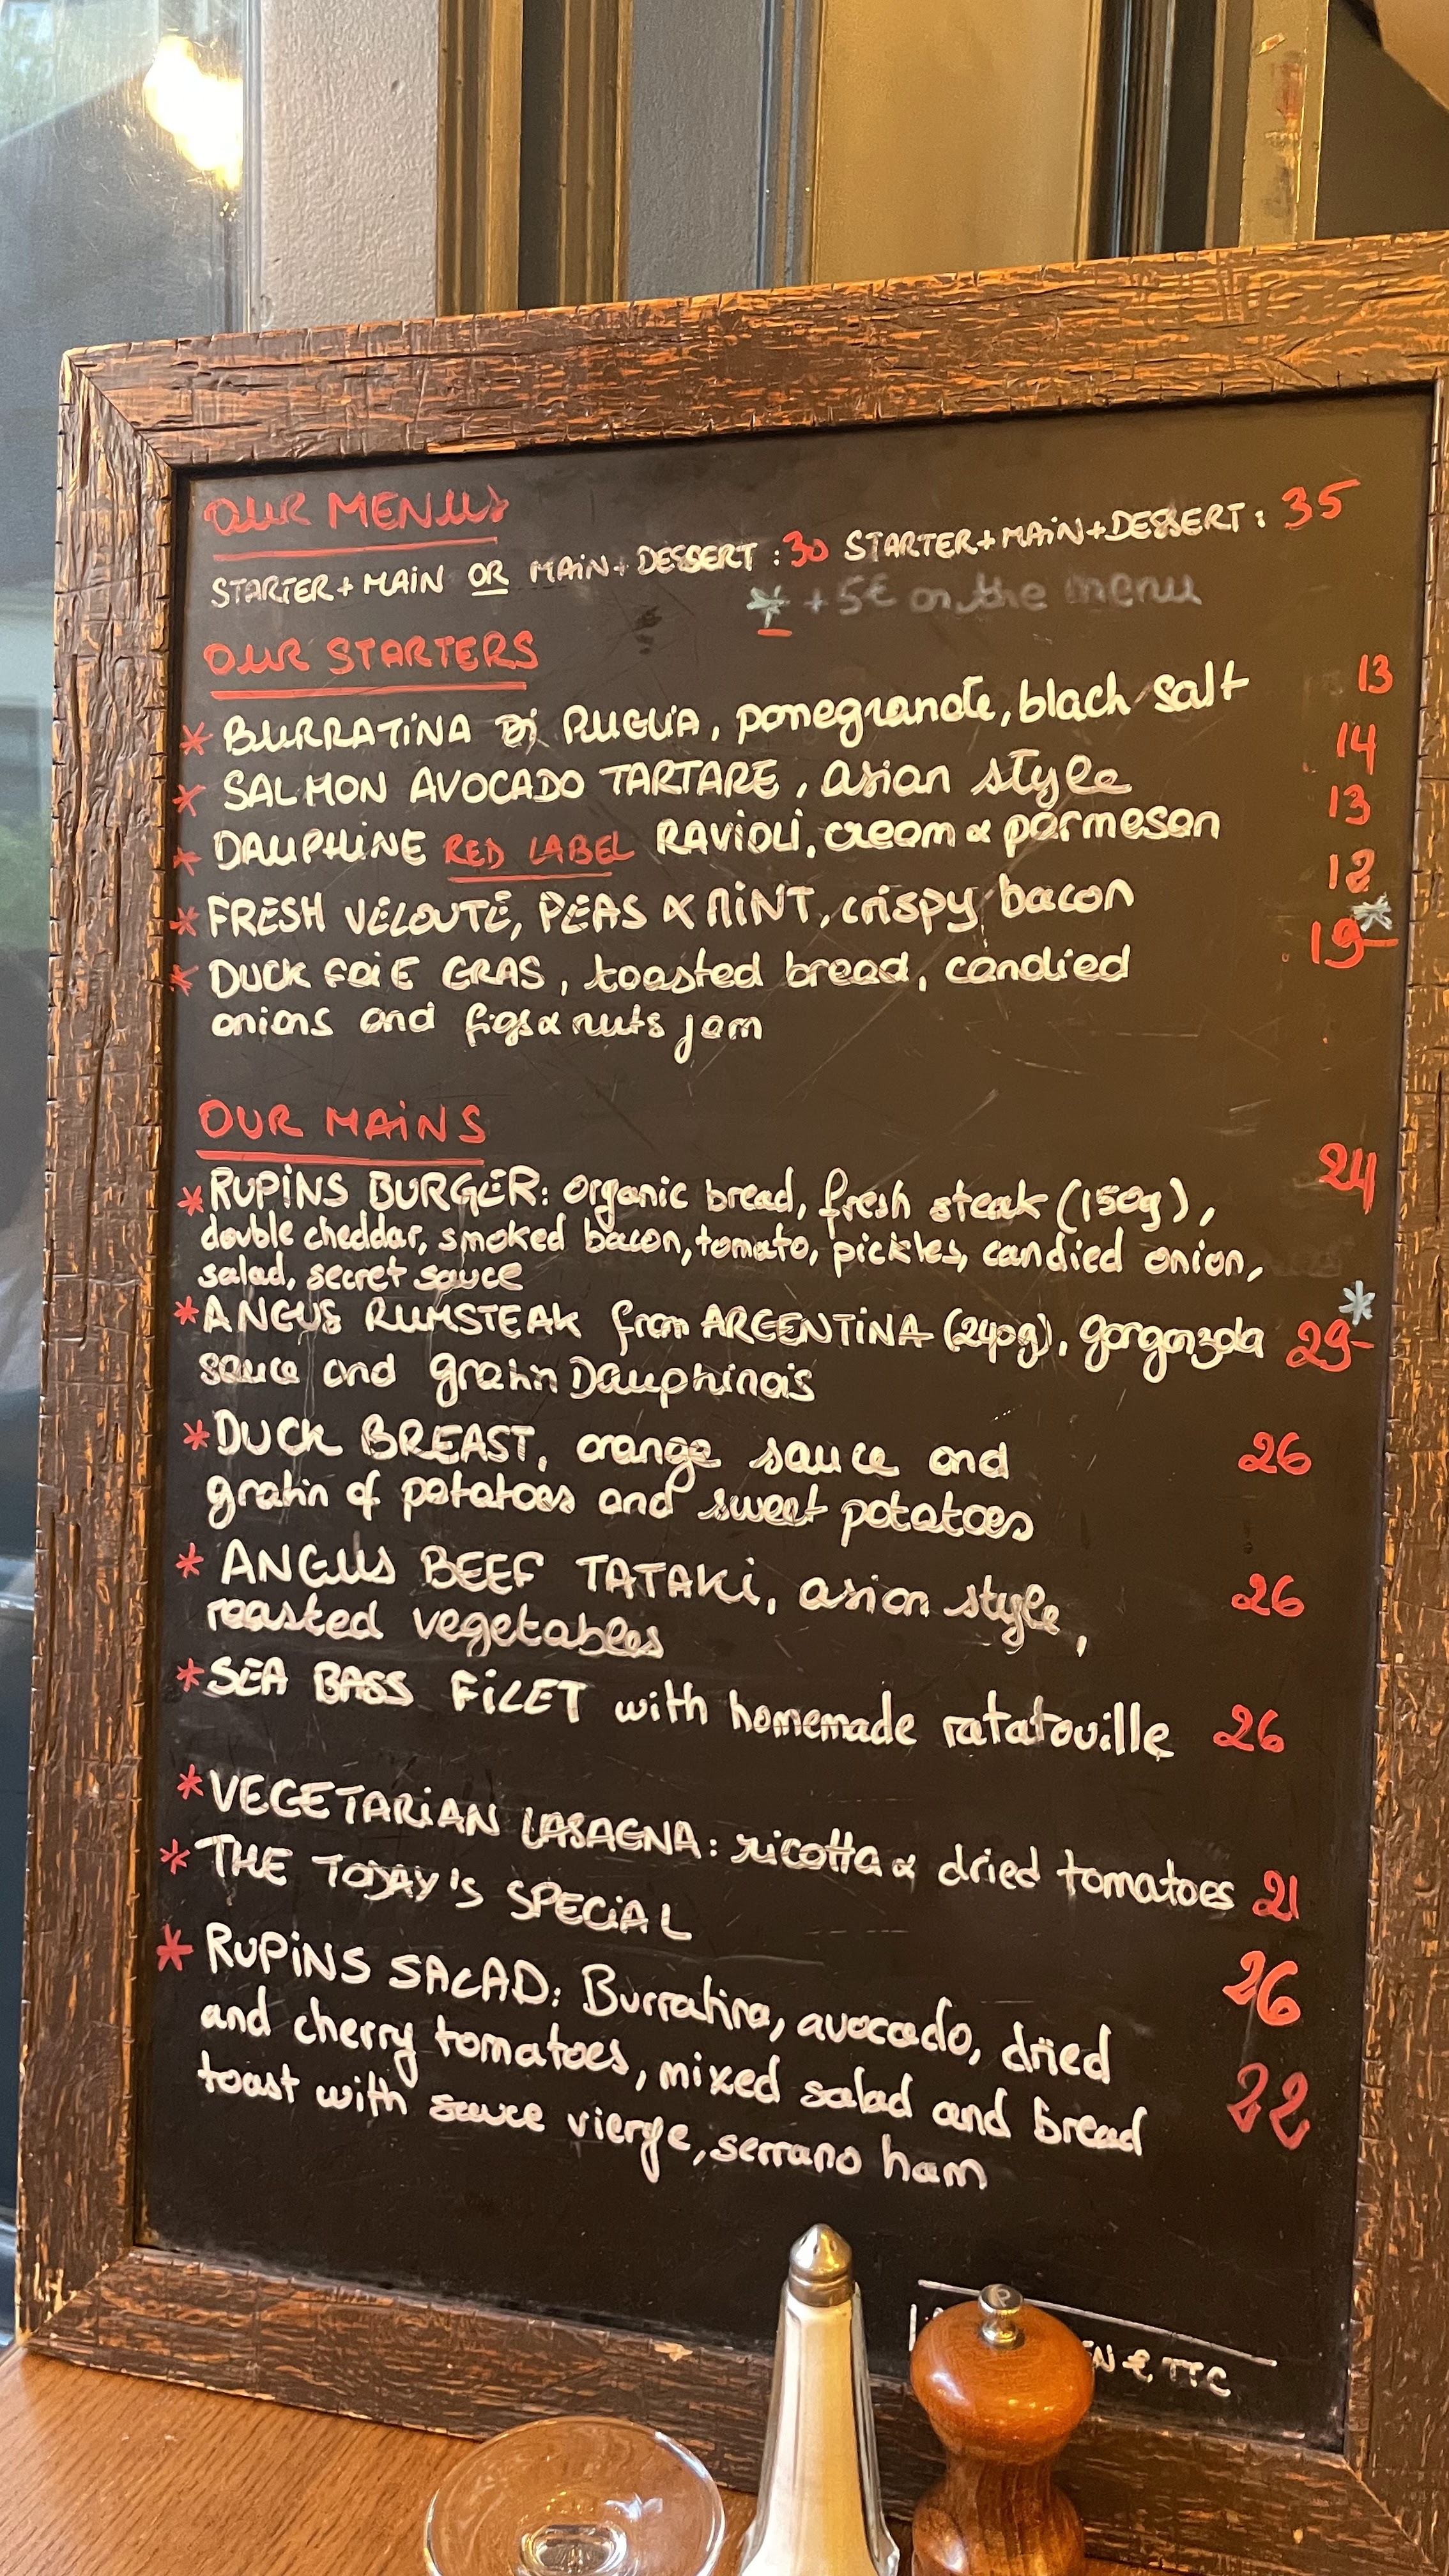 OUR MENUS
STARTER+MAIN OR MAIN+DESSERT:30 STARTER+MAIN+DESSERT: 35
* +5€ on the menu
OUR STARTERS
* BURRATINA Di PUGLIA, pomegranate, black salt 13
* SALMON AVOCADO TARTARE, asian style 14
* DAUPHINE RED LABEL RAVIOLI, cream & parmesan 13
* FRESH VELOUTÉ, PEAS & MINT, crispy bacon 12
* DUCK FOIE GRAS, toasted bread, candied 19-*
onions and figs & nuts jam
OUR MAINS
* RUPINS BURGER: organic bread, fresh steak (150g), 24
double cheddar, smoked bacon, tomato, pickles, candied onion,
salad, secret sauce
* ANGUS RUMSTEAK from ARGENTINA (240g), gorgonzola 29-*
sauce and gratin Dauphinois
* DUCK BREAST, orange sauce and 26
gratin of potatoes and sweet potatoes
* ANGUS BEEF TATAKi, asian style, 26
roasted vegetables
* SEA BASS FiLET with homemade ratatouille 26
* VEGETARIAN LASAGNA: ricotta & dried tomatoes 21
* THE TODAY'S SPECIAL 26
* RUPINS SALAD: Burratina, avocado, dried
and cherry tomatoes, mixed salad and bread 22
toast with sauce vierge, serrano ham
EN € TTC